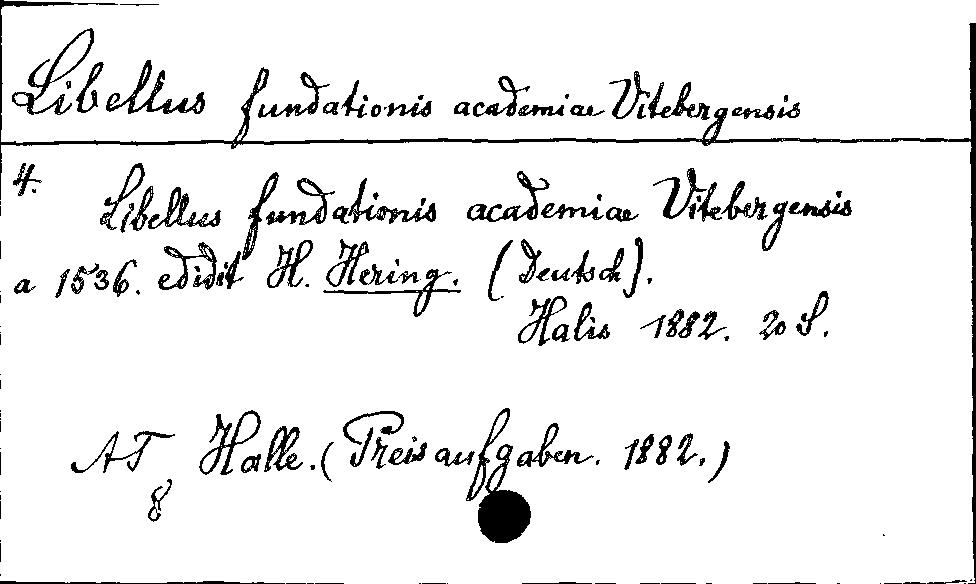 Libellus fundationis academiae Vitebergensis
4. Libellus fundationis academiae Vitebergensis
a 1536. edidit H. Hering. (Deutsch).
Halis 1882. 20 S.
AT Halle. (Preisaufgaben. 1882.)
8